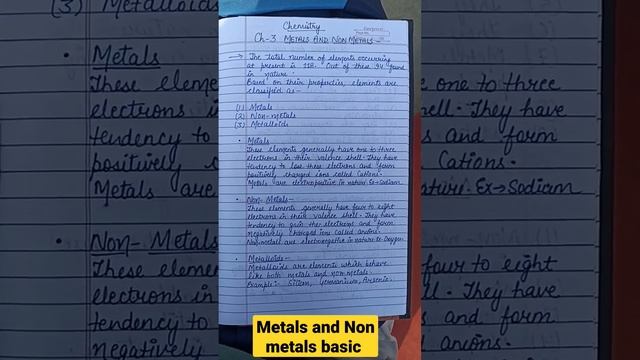 Chemistry
Ch-3. METALS AND NON METALS -
→ The total number of elements occurring
at present is 118. Out of these 94 found
in nature.
Based on their properties, elements are
classified as -
(1) Metals
(2) Non-metals
(3) Metalloids
• Metals
These elements generally have one to three
electrons in their valence shell. They have
tendency to lose these electrons and form
positively charged ions called Cations.
Metals are electropositive in nature. Ex→Sodium
• Non-Metals -
These elements generally have four to eight
electrons in their valence shell. They have
tendency to gain the electrons and form
negatively charged ions called anions.
Non-metals are electronegative in nature Ex Oxygen.
• Metalloids -
Metalloids are elements which behave
like both metals and non-metals.
Example:- Silicon, Germanium, Arsenic.
(3) Metalloids
• Metals
These eleme
electrons in
tendency to
positively c
Metals are
• Non-Metals
These elemen
electrons in
tendency to
negatively
e one to three
hell. They have
s and form
Cations.
nature. Ex→Sodium
four to eight
ll. They have
s and form
anions.
Metals and Non
metals basic